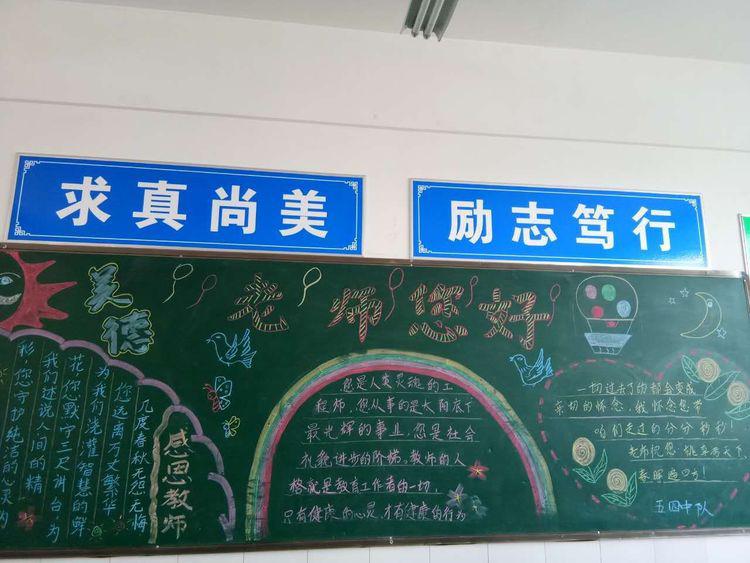 求真尚美
励志笃行
美德
老师您好
感恩教师
几度春秋无怨无悔
您远离万丈繁华
为我们浇灌智慧的鲜
花您默守三尺讲台为
我们述说人间的精
彩您守护纯洁的心灵为
您是人类灵魂的工
程师，您从事的是太阳底下
最光辉的事业，您是社会
礼貌进步的阶梯。教师的人
格就是教育工作者的一切，
只有健康的心灵，才有健康的行为
一切过去了的都会变成
亲切的怀念，我怀念您带
咱们走过的分分秒秒！
老师祝您 桃李满天下
春晖遍四方！
五四中队